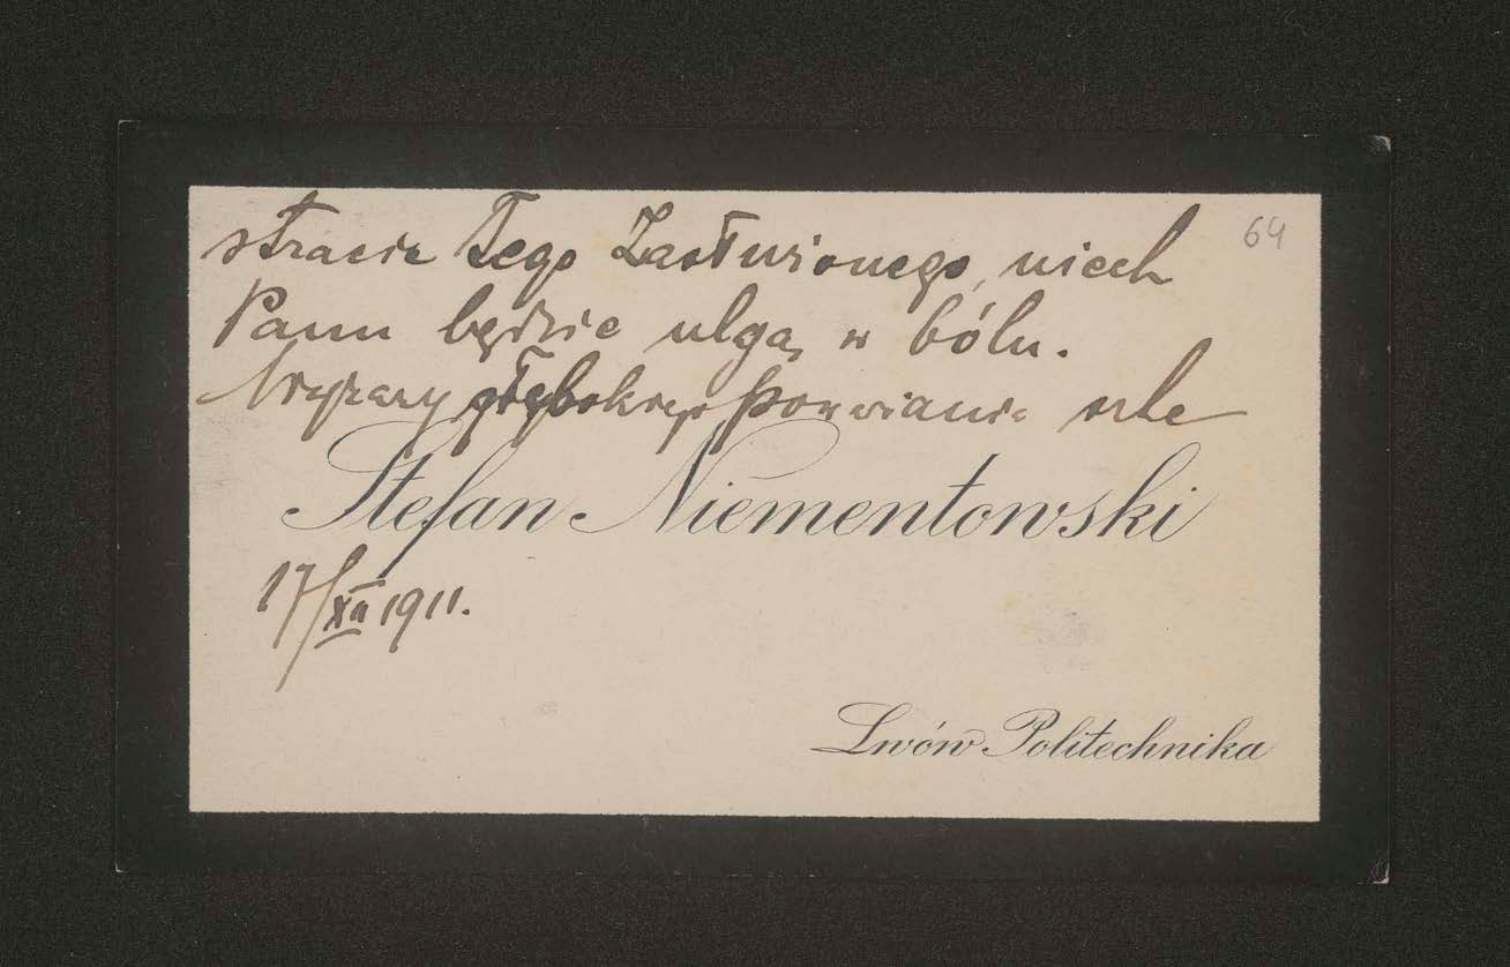 stracie Tego Zasłużonego, niech
64
Panu będzie ulgą w bólu.
Wyrazy głębokiego poważania śle
Stefan Niementowski
17/XII 1911.
Lwów Politechnika